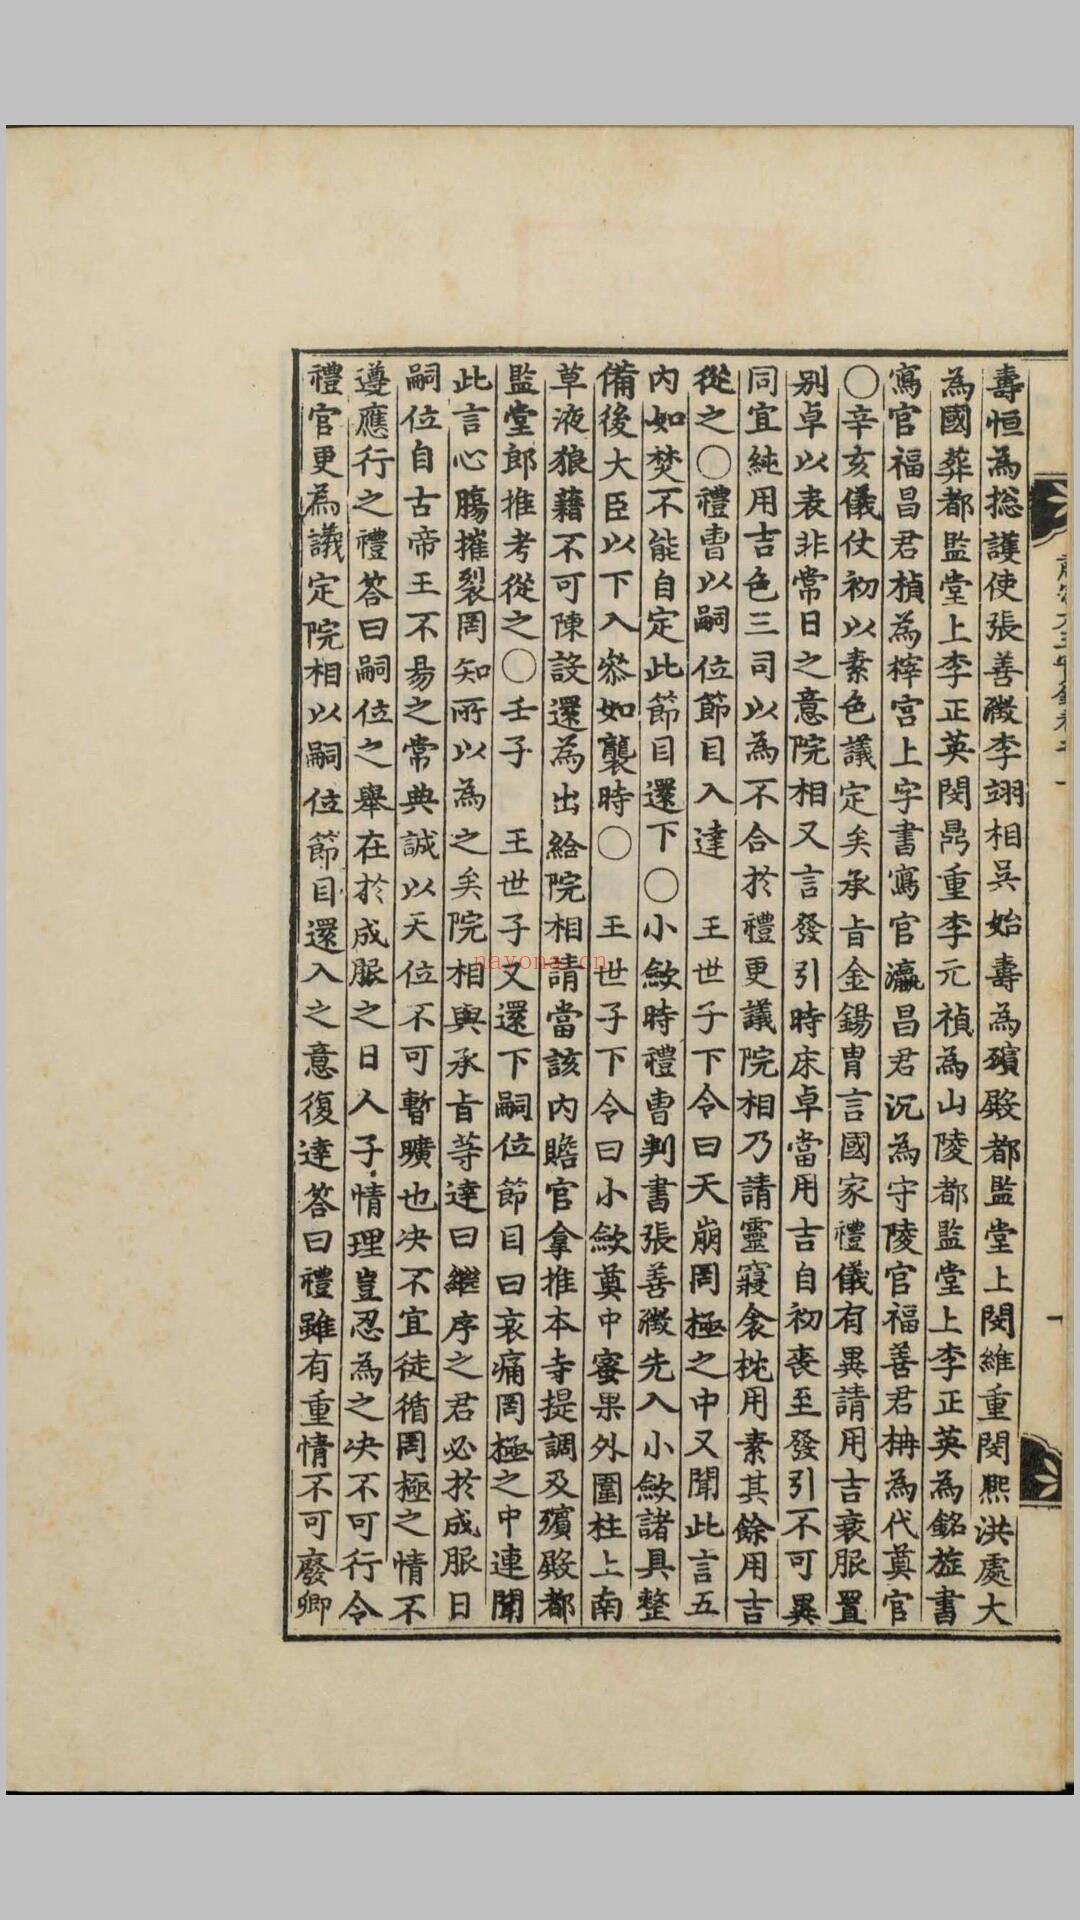 壽恒為揔護使張善瀓李翊相吳始壽為殯殿都監堂上閔維重閔熙洪處大
為國葬都監堂上李正英閔鼎重李元禎為山陵都監堂上李正英為銘旌書
寫官福昌君楨為梓宮上字書寫官瀛昌君沉為守陵官福善君柟為代奠官
〇辛亥儀仗初以素色議定矣承旨金錫胄言國家禮儀有異請用吉衮服置
别卓以表非常日之意院相又言發引時床卓當用吉自初喪至發引不可異
同宜純用吉色三司以為不合於禮更議院相乃請靈寢衾枕用素其餘用吉
從之〇禮曹以嗣位節目入達 王世子下令曰天崩罔極之中又聞此言五
內如焚不能自定此節目還下〇小斂時禮曹判書張善瀓先入小斂諸具整
備後大臣以下入叅如襲時〇 王世子下令曰小斂奠中蜜果外圍柱上南
草液狼藉不可陳設還為出給院相請當該內贍官拿推本寺提調及殯殿都
監堂郎推考從之〇壬子 王世子又還下嗣位節目曰哀痛罔極之中連聞
此言心膓摧裂罔知所以為之矣院相與承旨等達曰繼序之君必於成服日
嗣位自古帝王不易之常典誠以天位不可暫曠也决不宜徒循罔極之情不
遵應行之禮答曰嗣位之舉在於成服之日人子情理豈忍為之决不可行令
禮官更為議定院相以嗣位節目還入之意復達答曰禮雖有重情不可廢卿
nayona.cn